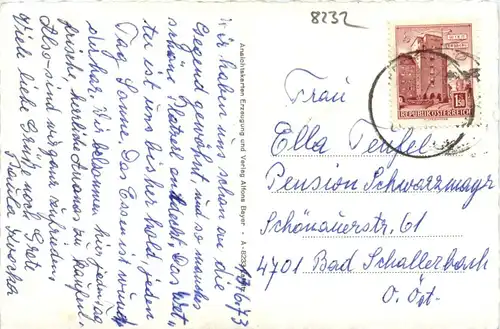 8232
19.6.73
Wir haben uns schon an die
Gegend gewöhnt und so manches
schöne Platzerl entdeckt. Das Wet-
ter ist uns bisher hold, jeden
Tag Sonne. Das Essen ist wun-
derbar, wir bekommen hier jeden Tag
frische, herrliche Ananas zu kaufen.
Also sind wir ganz zufrieden.
Viele liebe Grüße
Paula
Ansichtskarten Erzeugung und Verlag Alfons Bayer
REPUBLIK ÖSTERREICH
1.50
Frau
Ella Teufel
Pension Schwarzmayr
Schönauerstr. 61
4701 Bad Schallerbach
O. Öst.